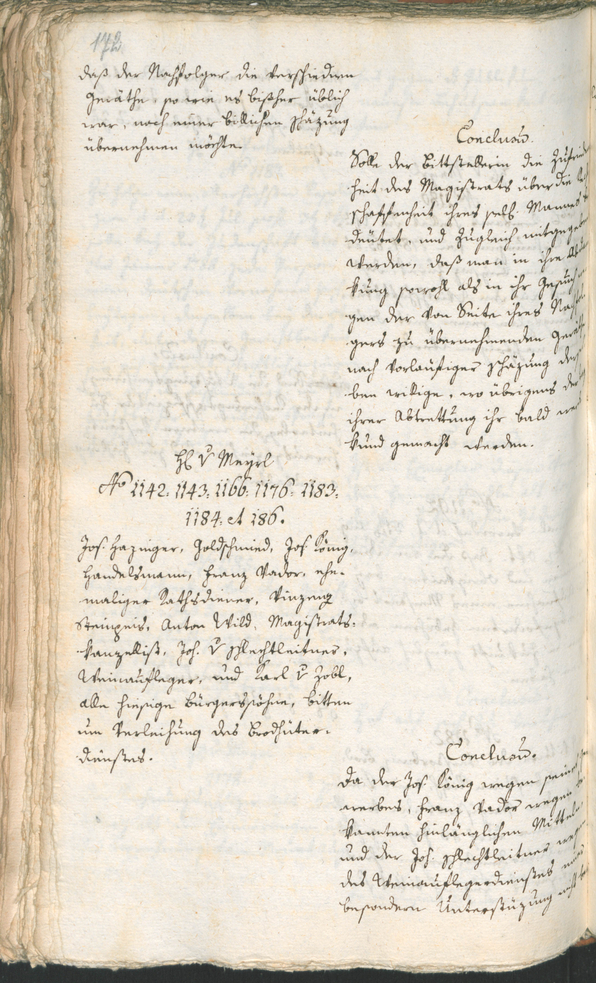 172
daß der Nachfolger die verschiedenen
Geräthe, so wie es bißher üblich
war, nach einer billichen Schäzung
übernehmen möchte.
Conclusum.
Solle der Bittstellerin die Zufrieden
heit des Magistrats über die
schaffenheit ihres sel. Mannes
deutet, und zugleich mitgegeben
werden, daß man in ihre
kung sowohl als in ihr Gesuch
gen der von Seite ihres Nachfol
gers zu übernehmenden Geräthe
nach vorläufiger Schäzung
ben willige, wo übrigens der
ihrer Abtrettung ihr bald
kund gemacht werden.
H v Meyrl
No 1142. 1143. 1166. 1176. 1183.
1184. et 186.
Jos. Hazinger, Goldschmied, Jos. König,
Handelsmann, Franz Vador, ehe-
maliger Rathsdiener, Vinzenz
Steinpeis, Anton Wild, Magistrats-
kanzellist, Joh. v Schlechtleitner,
Weinaufleger, und Karl v Zobl,
alle hiesige Bürgerssöhne, bitten
um Verleihung des Brodhüter-
dienstes.
Conclusum.
Da der Jos. König wegen seines
werbes, Franz Vador wegen
kannten hinlänglichen Mitteln
und der Joh. Schlechtleitner wegen
des Weinauflegerdienstes
besondern Unterstüzung nicht